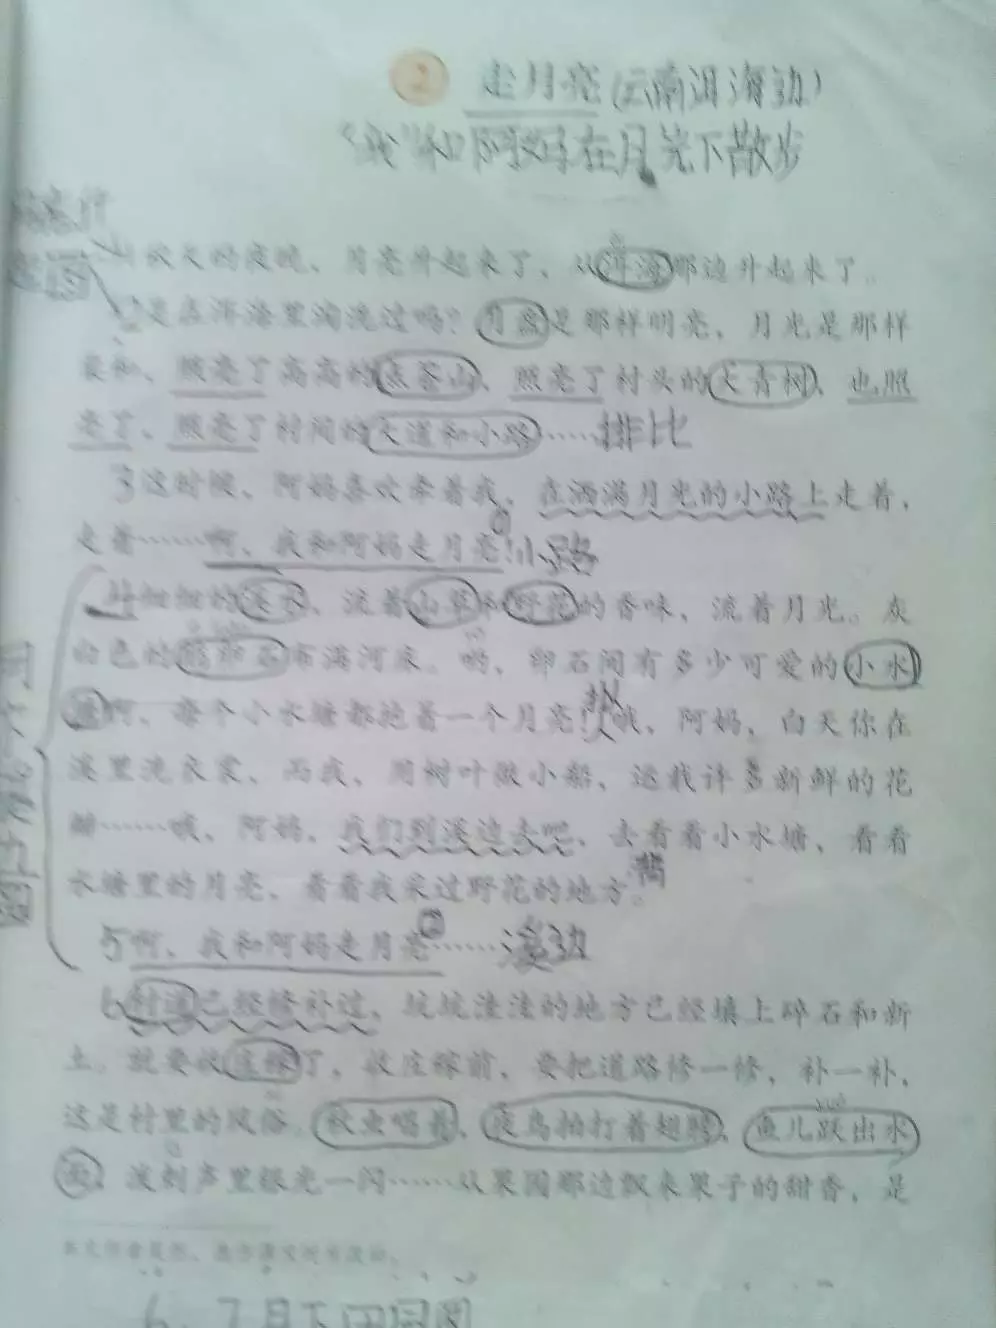 2 走月亮（云南洱海边）
“我”和阿妈在月光下散步
1 秋天的夜晚，月亮升起来了，从洱海那边升起来了。
2 是在洱海里淘洗过吗？月盘是那样明亮，月光是那样
柔和，照亮了高高的点苍山，照亮了村头的大青树，也照
亮了，照亮了村间的大道和小路……排比
3 这时候，阿妈喜欢牵着我，在洒满月光的小路上走着，
走着……啊，我和阿妈走月亮！①小路
4 细细的溪水，流着山草和野花的香味，流着月光。灰
白色的鹅卵石布满河床。哟，卵石间有多少可爱的小水
塘啊，每个小水塘都抱着一个月亮！拟人 哦，阿妈，白天你在
溪里洗衣裳，而我，用树叶做小船，运载许多新鲜的花
瓣……哦，阿妈，我们到溪边去吧，去看看小水塘，看看
水塘里的月亮，看看我采过野花的地方。
5 啊，我和阿妈走月亮②……溪边
6 村道已经修补过，坑坑洼洼的地方已经填上碎石和新
土。就要收庄稼了，收庄稼前，要把道路修一修，补一补，
这是村里的风俗。秋虫唱着，夜鸟拍打着翅膀，鱼儿跃出水
面，泼剌声里银光一闪……从果园那边飘来果子的甜香，是
6、7月下田园图